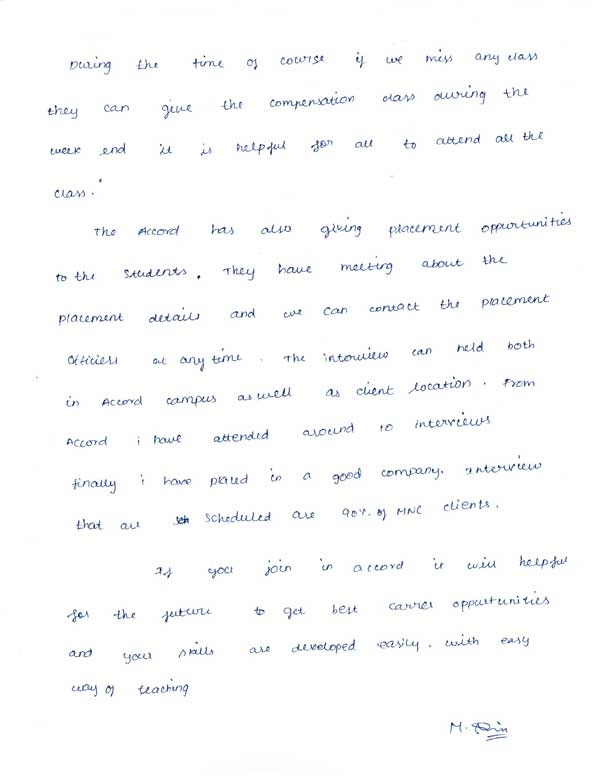 During the time of course if we miss any class
they can give the compensation class during the
week end it is helpful for all to attend all the
class.
The Accord has also giving placement oppurtunities
to the students. They have meeting about the
placement details and we can contact the placement
Officiers at any time. The interview can held both
in Accord campus as well as client location. From
Accord i have attended around 10 interviews
finally i have placed in a good company. Interview
that are scheduled are 90% of MNC clients.
If you join in accord it will helpful
for the future to get best carrer oppurtunities
and your skills are developed easily. with easy
way of teaching
M.